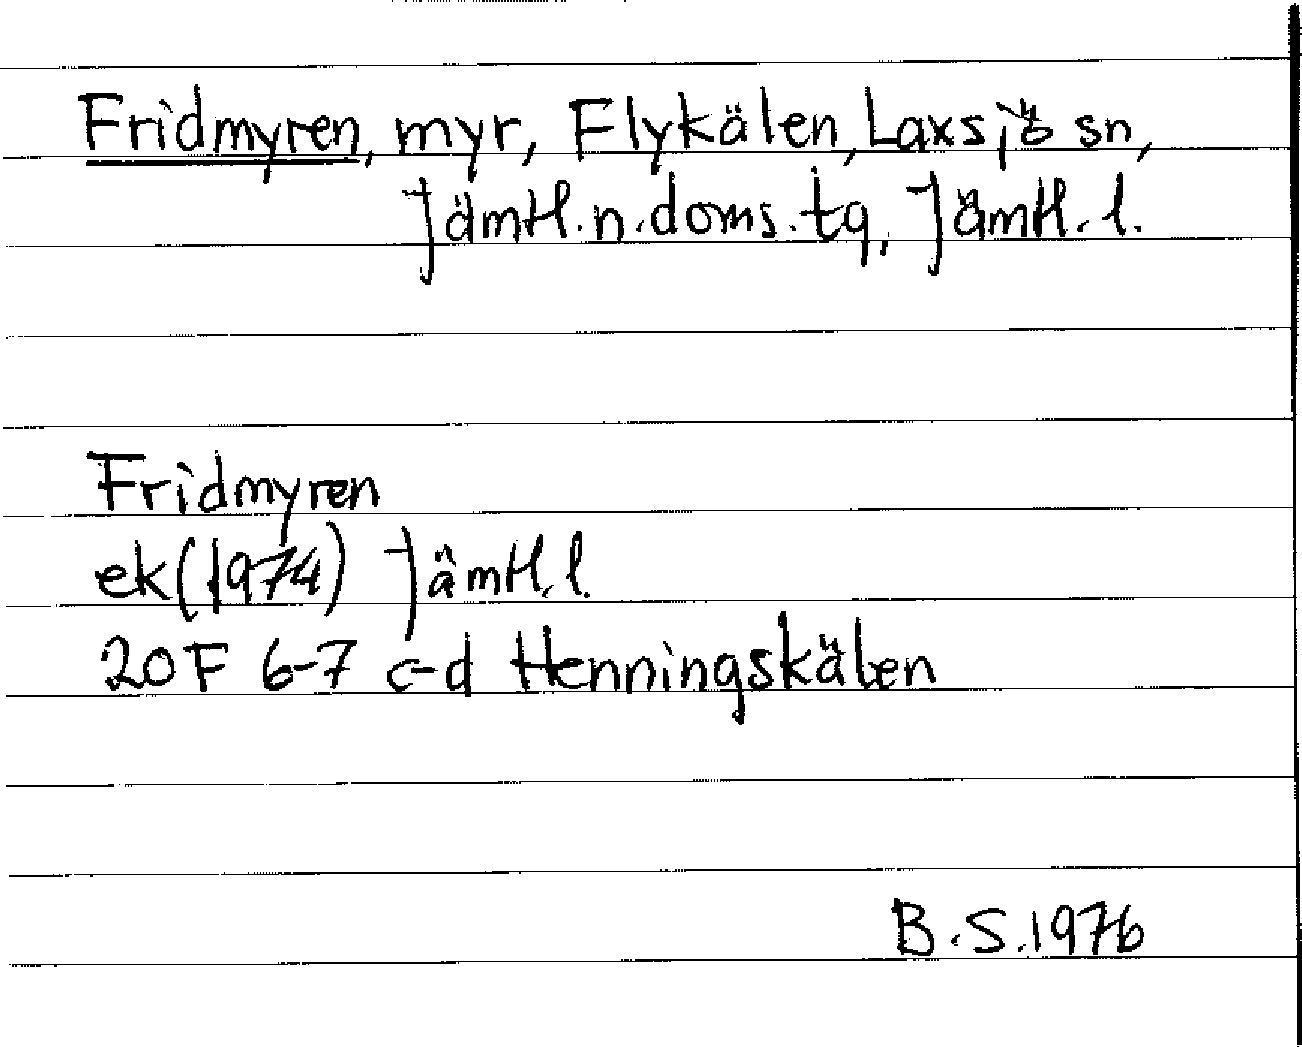 Fridmyren, myr, Flykälen, Laxsjö sn,
Jämtl. n. doms. tg, Jämtl. l.
Fridmyren
ek (1974) Jämtl. l.
20F 6-7 c-d Henningskälen
B.S. 1976